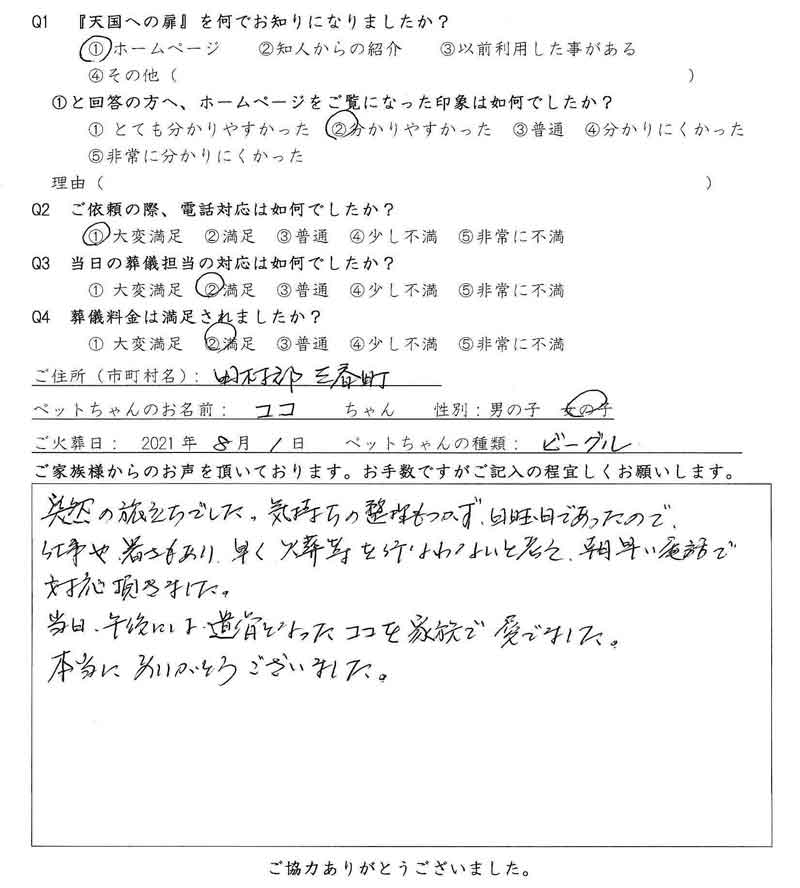 Q1 『天国への扉』を何でお知りになりましたか？
①ホームページ ②知人からの紹介 ③以前利用した事がある
④その他（ ）
①と回答の方へ、ホームページをご覧になった印象は如何でしたか？
① とても分かりやすかった ②分かりやすかった ③普通 ④分かりにくかった
⑤非常に分かりにくかった
理由（ ）
Q2 ご依頼の際、電話対応は如何でしたか？
① 大変満足 ②満足 ③普通 ④少し不満 ⑤非常に不満
Q3 当日の葬儀担当の対応は如何でしたか？
① 大変満足 ②満足 ③普通 ④少し不満 ⑤非常に不満
Q4 葬儀料金は満足されましたか？
① 大変満足 ②満足 ③普通 ④少し不満 ⑤非常に不満
ご住所（市町村名）：田村郡 三春町
ペットちゃんのお名前： ココ ちゃん 性別：男の子 女の子
ご火葬日： 2021 年 8 月 1 日 ペットちゃんの種類： ビーグル
ご家族様からのお声を頂いております。お手数ですがご記入の程宜しくお願いします。
突然の旅立ちでした。気持ちの整理もつかず、日曜日であったので、
仕事や、暑さもあり、早く火葬等を行なわないと考え、朝早い電話で
対応頂きました。
当日、午後には、遺骨となったココを家族で愛でました。
本当にありがとうございました。
ご協力ありがとうございました。